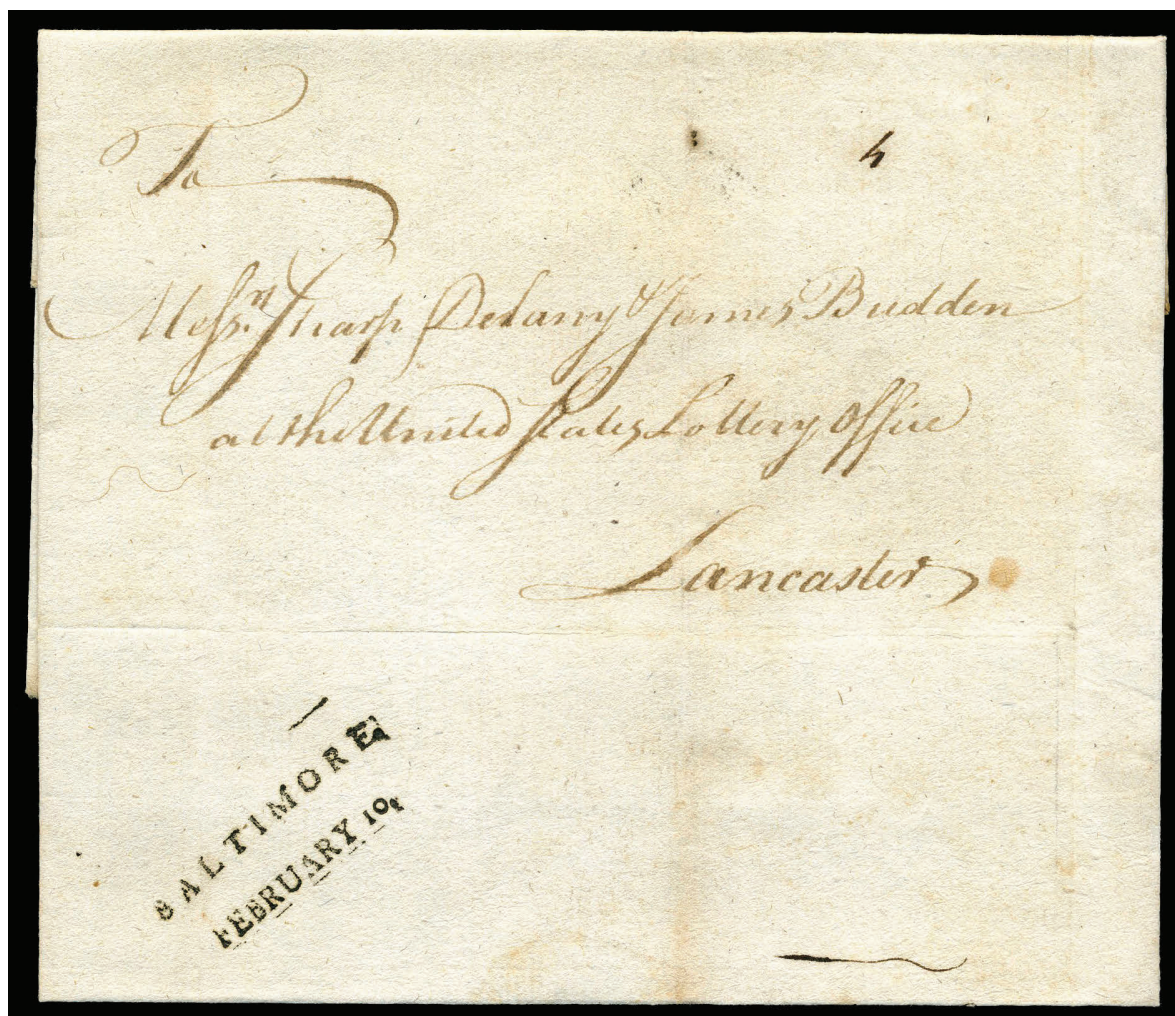 To
4
Messrs. Sharp Delany & James Budden
at the United States Lottery Office
Lancaster
BALTIMORE
FEBRUARY 10